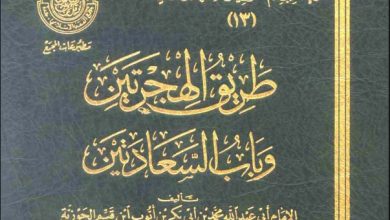 (١٣)
مطبوعات المجمع
طَرِيقُ الهِجْرَتَيْنِ
وَبَابُ السَّعَادَتَيْنِ
تأليف
الإمام أبي عبد الله محمد بن أبي بكر بن أيوب ابن قيم الجوزية